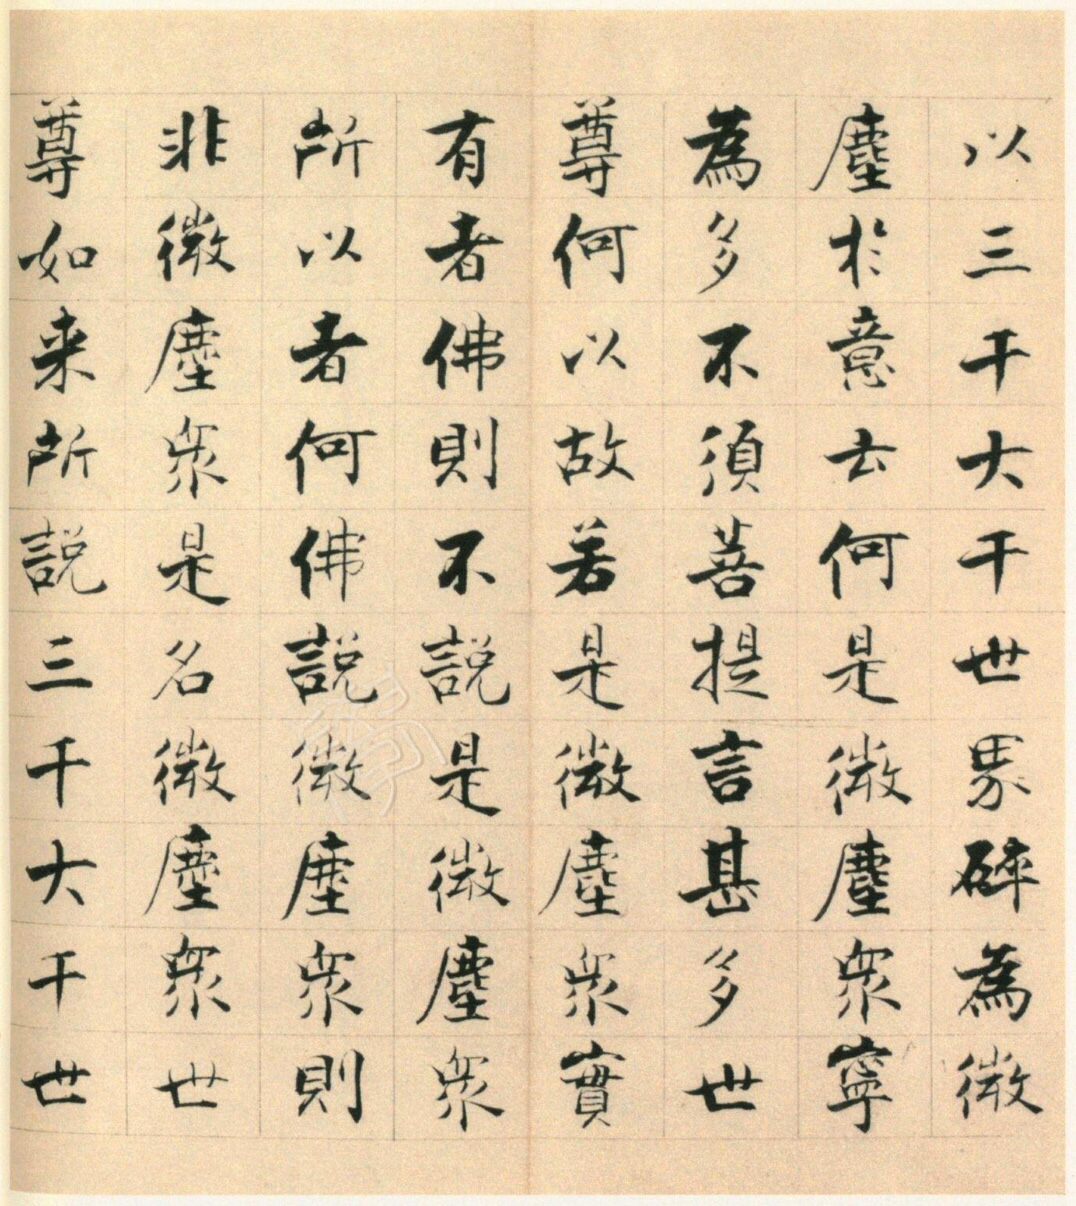 以三千大千世界碎為微
塵於意云何是微塵衆寧
為多不須菩提言甚多世
尊何以故若是微塵衆實
有者佛則不說是微塵衆
所以者何佛說微塵衆則
非微塵衆是名微塵衆世
尊如来所說三千大千世